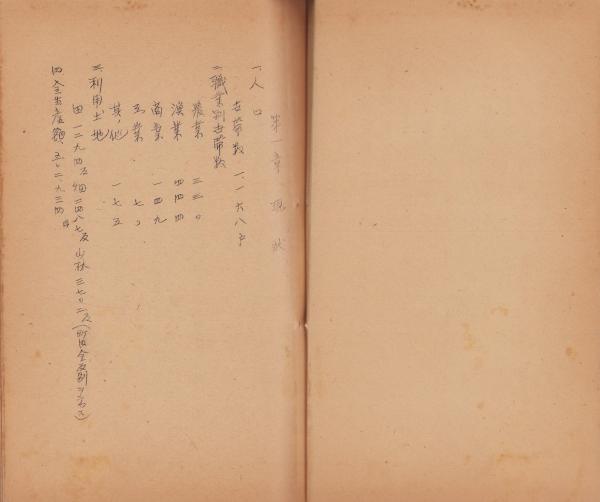 第一章 現状
一、人口
世帯数 一、一六八戸
二、職業別世帯数
農業 三三〇
漁業 四四四
商業 一四九
工業 七〇
其ノ他 一七五
三、利用土地
田 一二九四反 畑 二四八七反 山林 三七〇二反
四、全生産額 五〇二、九三四円